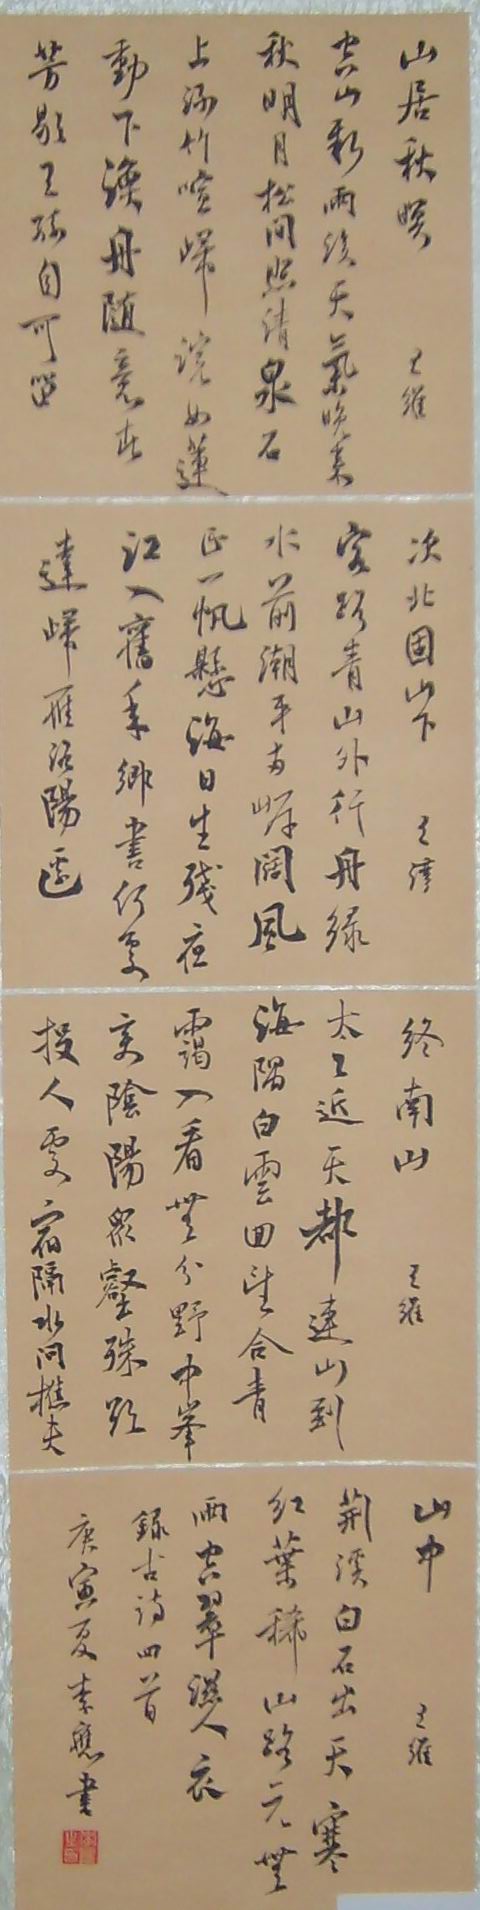 山居秋暝 王維
空山新雨後天氣晚來
秋明月松間照清泉石
上流竹喧歸浣女蓮
動下漁舟随意春
芳歇王孫自可留
次北固山下 王灣
客路青山外行舟緑
水前潮平两岸闊風
正一帆懸海日生殘夜
江入舊年鄉書何處
達歸雁洛陽邊
終南山 王維
太乙近天都連山到
海隅白雲回望合青
靄入看無分野中峯
變陰陽衆壑殊欲
投人處宿隔水問樵夫
山中 王維
荊溪白石出天寒
红葉稀山路元無
雨空翠濕人衣
録古詩四首
庚寅夏李應書